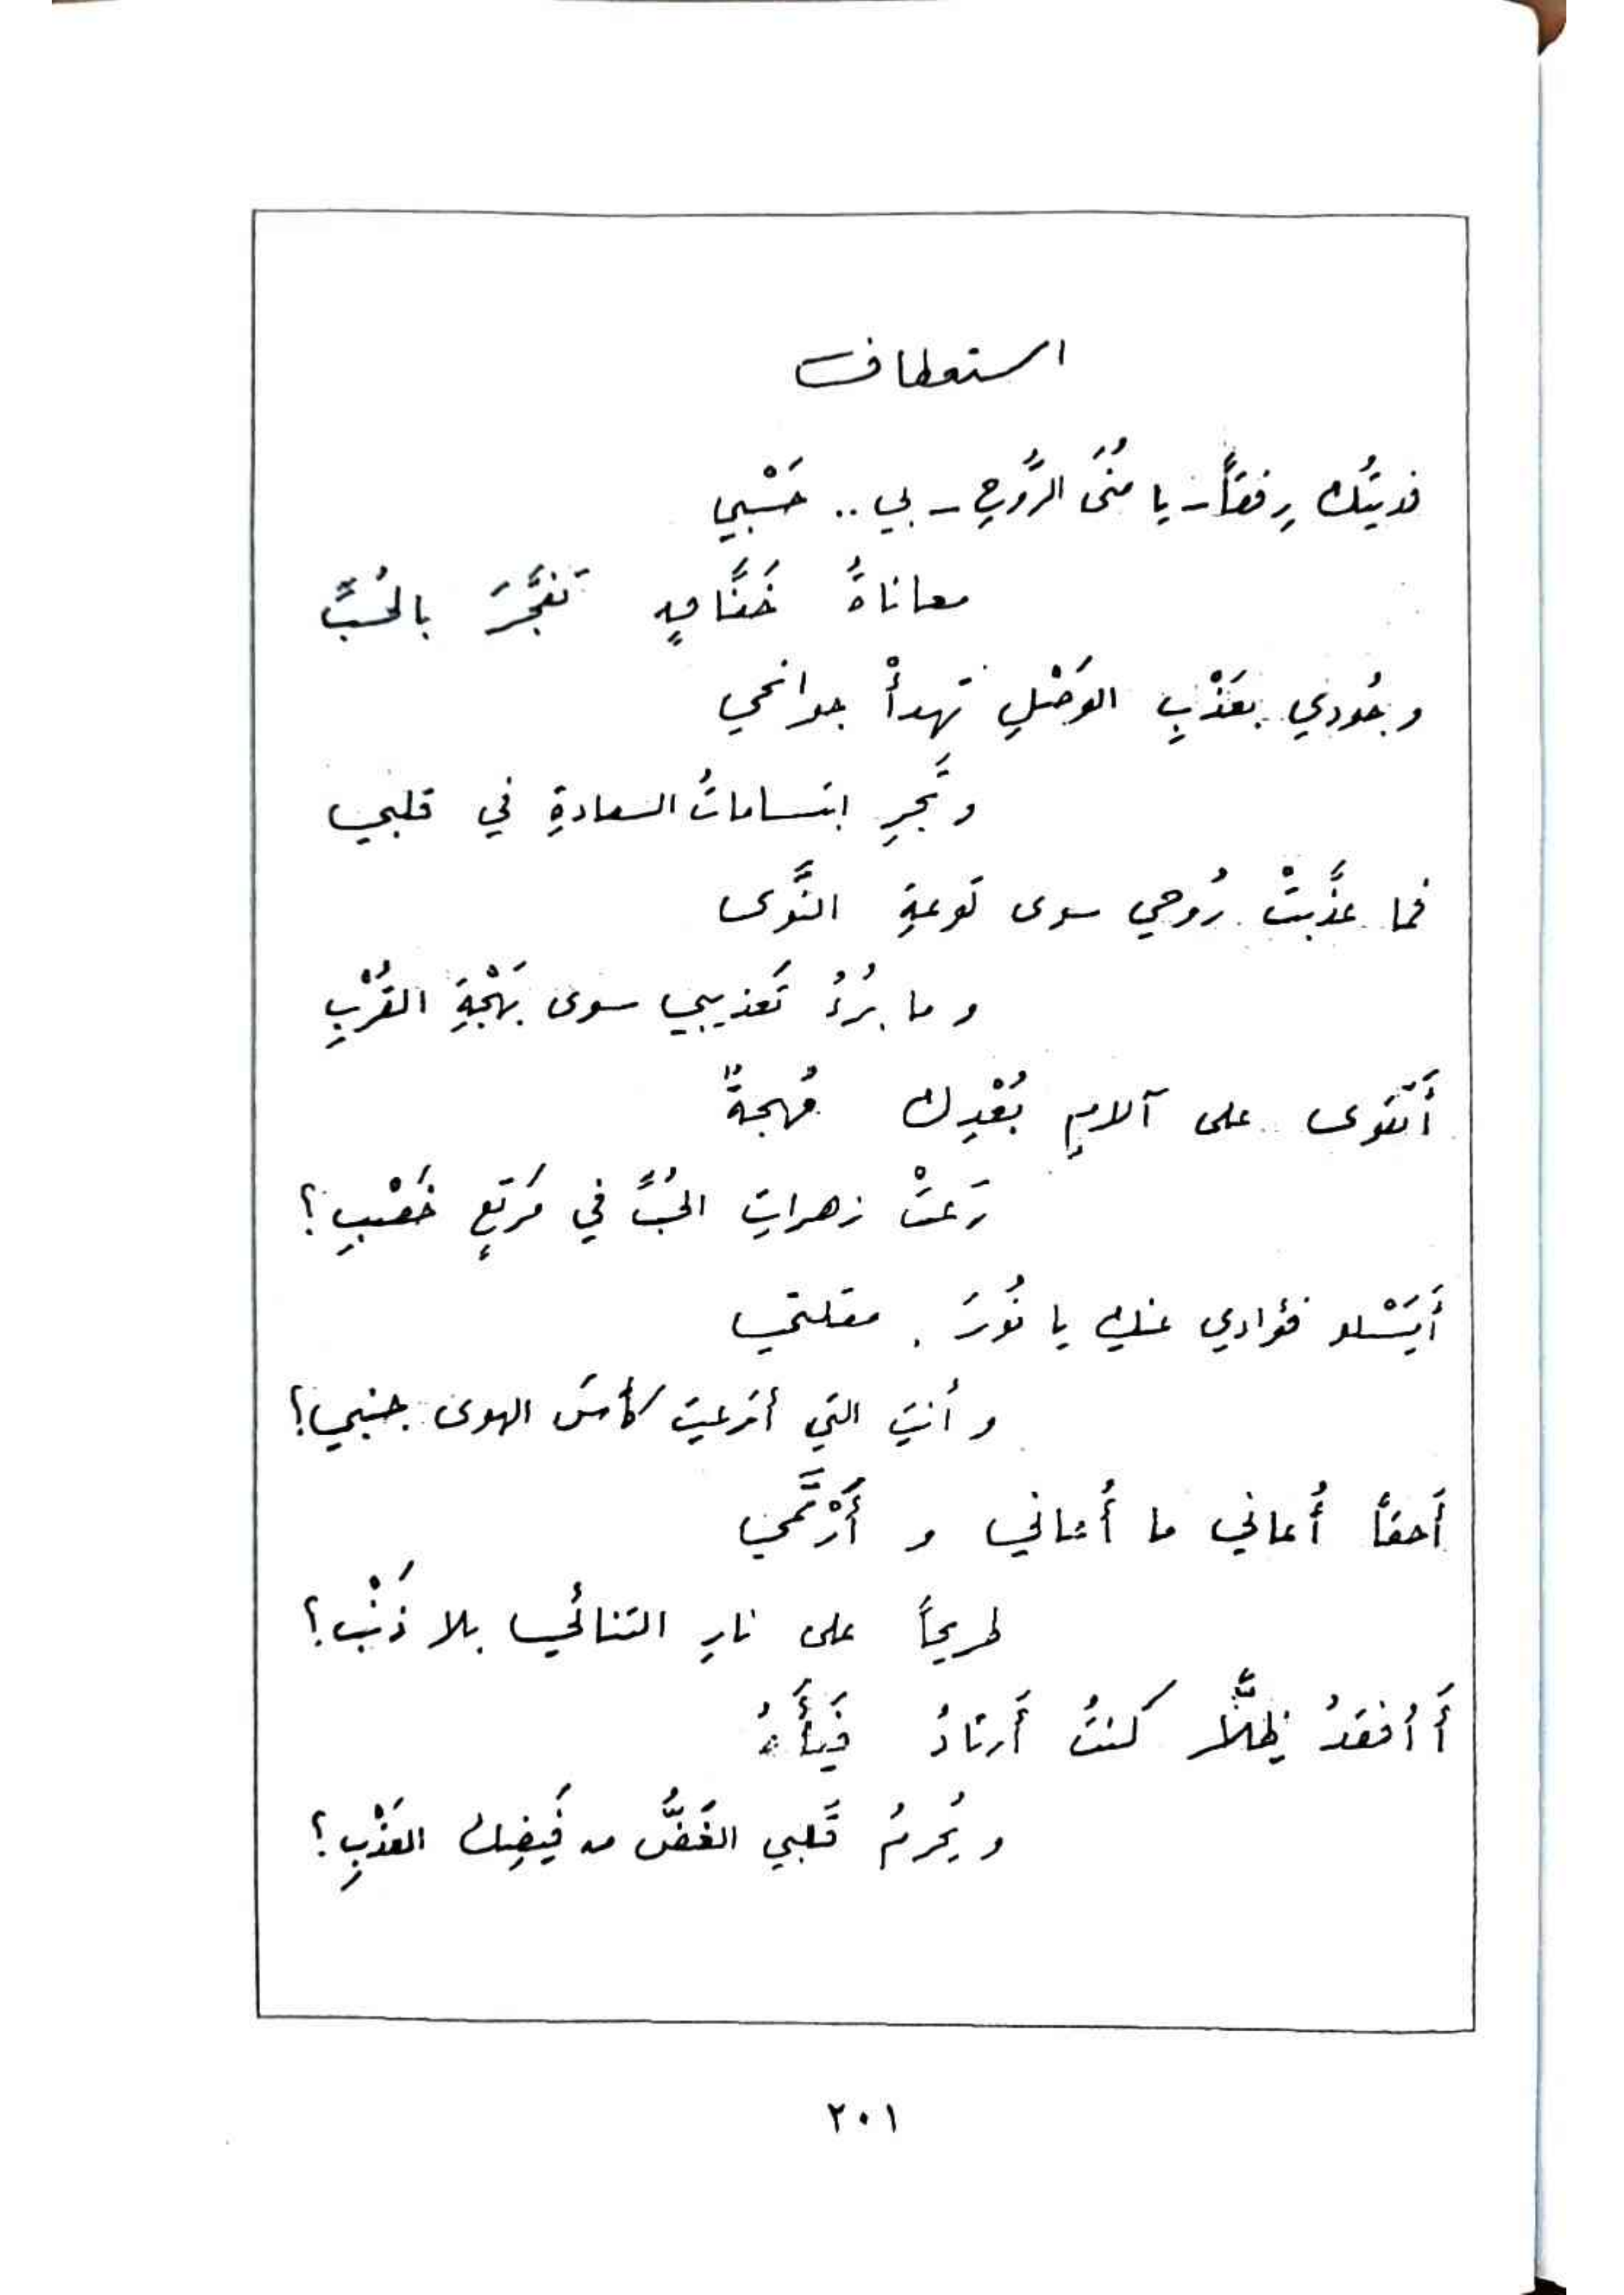 استعطاف
فديتُك رِفقاً - يا مُنَى الرُّوحِ - بي .. حَسْبي
معاناةُ خَفَّاقٍ تَفجَّرَ بالحُبِّ
وجُودي بعَذْبِ الوَصْلِ تهدأْ جوانحي
وتَجرِ ابتساماتُ السعادةِ في قلبي
فما عذَّبتْ رُوحي سوى لَوعةِ النَّوى
وما بُرْءُ تَعذيبي سوى بَهْجةِ القُرْبِ
أَتَقوَى على آلامِ بُعْدِك مُهجةٌ
رَعتْ زهراتِ الحُبِّ في مَرتَعٍ خَصْبِ؟
أَيَسْلو فؤادي عنكِ يا نُورَ مقلتي
وأنتِ التي أترعتِ كأسَ الهوى جنبي؟
أَحقاً أُعاني ما أُعاني و أَرْتَمي
طريحاً على نارِ التنائي بلا ذَنْبِ؟
أَأفقدُ ظِلّاً كنتُ أَرتادُ فَيأَهُ
ويُحرمُ قَلبي الغَضُّ من فَيضِكِ العَذْبِ؟
٢٠١